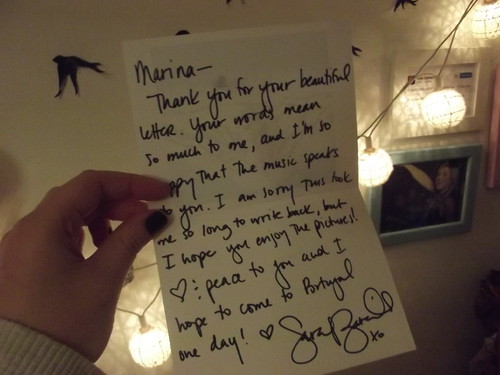 Marina—
Thank you for your beautiful
letter. Your words mean
so much to me, and I'm so
ppy that the music speaks
to you. I am sorry this took
me so long to write back, but
I hope you enjoy the pictures!
♡: peace to you and I
hope to come to Portugal
one day! ♡ Sara Bareilles
xo